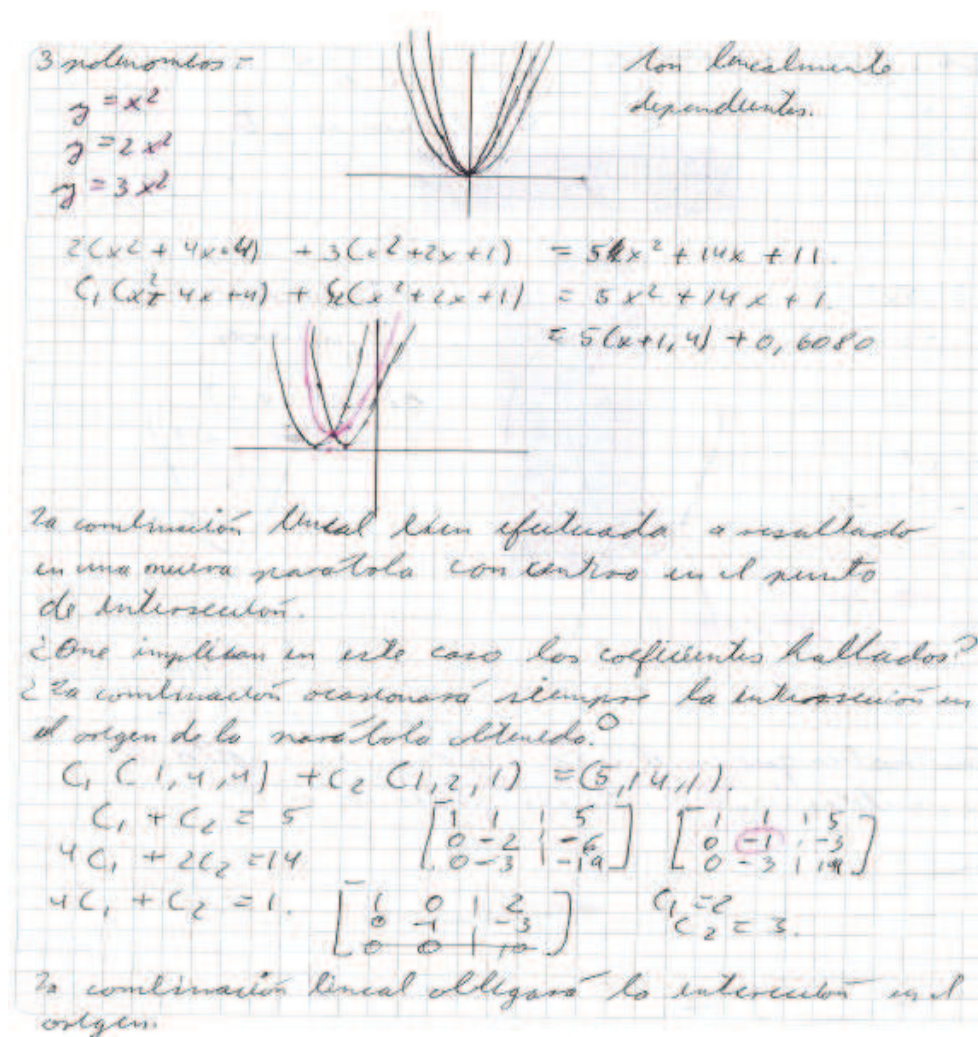 3 polinomios =
son linealmente
dependientes.
y = x²
y = 2x²
y = 3x²
2(x² + 4x+4) + 3(x²+2x+1) = 5x² + 14x + 11.
C₁(x²+ 4x+4) + C₂(x²+2x+1) = 5x² + 14x + 1.
= 5(x+1,4) + 0,6080
La combinación lineal bien efectuada a resultado
en una nueva parábola con centro en el punto
de intersección.
¿Que implican en este caso los coeficientes hallados?
¿La combinación ocasionará siempre la intersección en
el origen de la parábola obtenida?
C₁ (1,4,4) + C₂ (1,2,1) = (5,14,1).
C₁ + C₂ = 5 [1 1 | 5 [1 1 | 5
4C₁ + 2C₂ = 14 0 -2 | -6 0 -1 | -3
0 -3 | -19] 0 -3 | 19]
4C₁ + C₂ = 1. [1 0 | 2 C₁ = 2
0 -1 | -3 C₂ = 3.
0 0 | 10]
La combinación lineal obligará la intersección en el
origen.